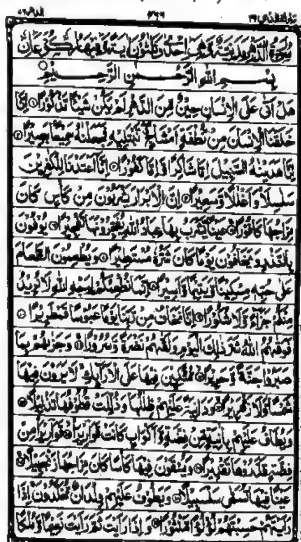 بِسْمِ اللهِ الرَّحْمٰنِ الرَّحِيْمِ
هَلْ اَتٰى عَلَى الْاِنْسَانِ حِيْنٌ مِّنَ الدَّهْرِ لَمْ يَكُنْ شَيْئًا مَّذْكُوْرًا اِنَّا
خَلَقْنَا الْاِنْسَانَ مِنْ نُّطْفَةٍ اَمْشَاجٍ نَّبْتَلِيْهِ فَجَعَلْنٰهُ سَمِيْعًا بَصِيْرًا
اِنَّا هَدَيْنٰهُ السَّبِيْلَ اِمَّا شَاكِرًا وَّاِمَّا كَفُوْرًا اِنَّا اَعْتَدْنَا لِلْكٰفِرِيْنَ
سَلٰسِلَا وَاَغْلٰلًا وَّسَعِيْرًا اِنَّ الْاَبْرَارَ يَشْرَبُوْنَ مِنْ كَاْسٍ كَانَ
مِزَاجُهَا كَافُوْرًا عَيْنًا يَّشْرَبُ بِهَا عِبَادُ اللهِ يُفَجِّرُوْنَهَا تَفْجِيْرًا يُوْفُوْنَ
بِالنَّذْرِ وَيَخَافُوْنَ يَوْمًا كَانَ شَرُّهٗ مُسْتَطِيْرًا وَيُطْعِمُوْنَ الطَّعَامَ
عَلٰى حُبِّهٖ مِسْكِيْنًا وَّيَتِيْمًا وَّاَسِيْرًا اِنَّمَا نُطْعِمُكُمْ لِوَجْهِ اللهِ لَا نُرِيْدُ
مِنْكُمْ جَزَآءً وَّلَا شُكُوْرًا اِنَّا نَخَافُ مِنْ رَّبِّنَا يَوْمًا عَبُوْسًا قَمْطَرِيْرًا
فَوَقٰىهُمُ اللهُ شَرَّ ذٰلِكَ الْيَوْمِ وَلَقّٰىهُمْ نَضْرَةً وَّسُرُوْرًا وَجَزٰىهُمْ بِمَا
صَبَرُوْا جَنَّةً وَّحَرِيْرًا مُّتَّكِـِٕيْنَ فِيْهَا عَلَى الْاَرَآئِكِ لَا يَرَوْنَ فِيْهَا
شَمْسًا وَّلَا زَمْهَرِيْرًا وَدَانِيَةً عَلَيْهِمْ ظِلٰلُهَا وَذُلِّلَتْ قُطُوْفُهَا تَذْلِيْلًا
وَيُطَافُ عَلَيْهِمْ بِاٰنِيَةٍ مِّنْ فِضَّةٍ وَّاَكْوَابٍ كَانَتْ قَوَارِيْرَا قَوَارِيْرَا مِنْ
فِضَّةٍ قَدَّرُوْهَا تَقْدِيْرًا وَيُسْقَوْنَ فِيْهَا كَاْسًا كَانَ مِزَاجُهَا زَنْجَبِيْلًا
عَيْنًا فِيْهَا تُسَمّٰى سَلْسَبِيْلًا وَيَطُوْفُ عَلَيْهِمْ وِلْدَانٌ مُّخَلَّدُوْنَ اِذَا
رَاَيْتَهُمْ حَسِبْتَهُمْ لُؤْلُؤًا مَّنْثُوْرًا وَاِذَا رَاَيْتَ ثَمَّ رَاَيْتَ نَعِيْمًا وَّمُلْكًا